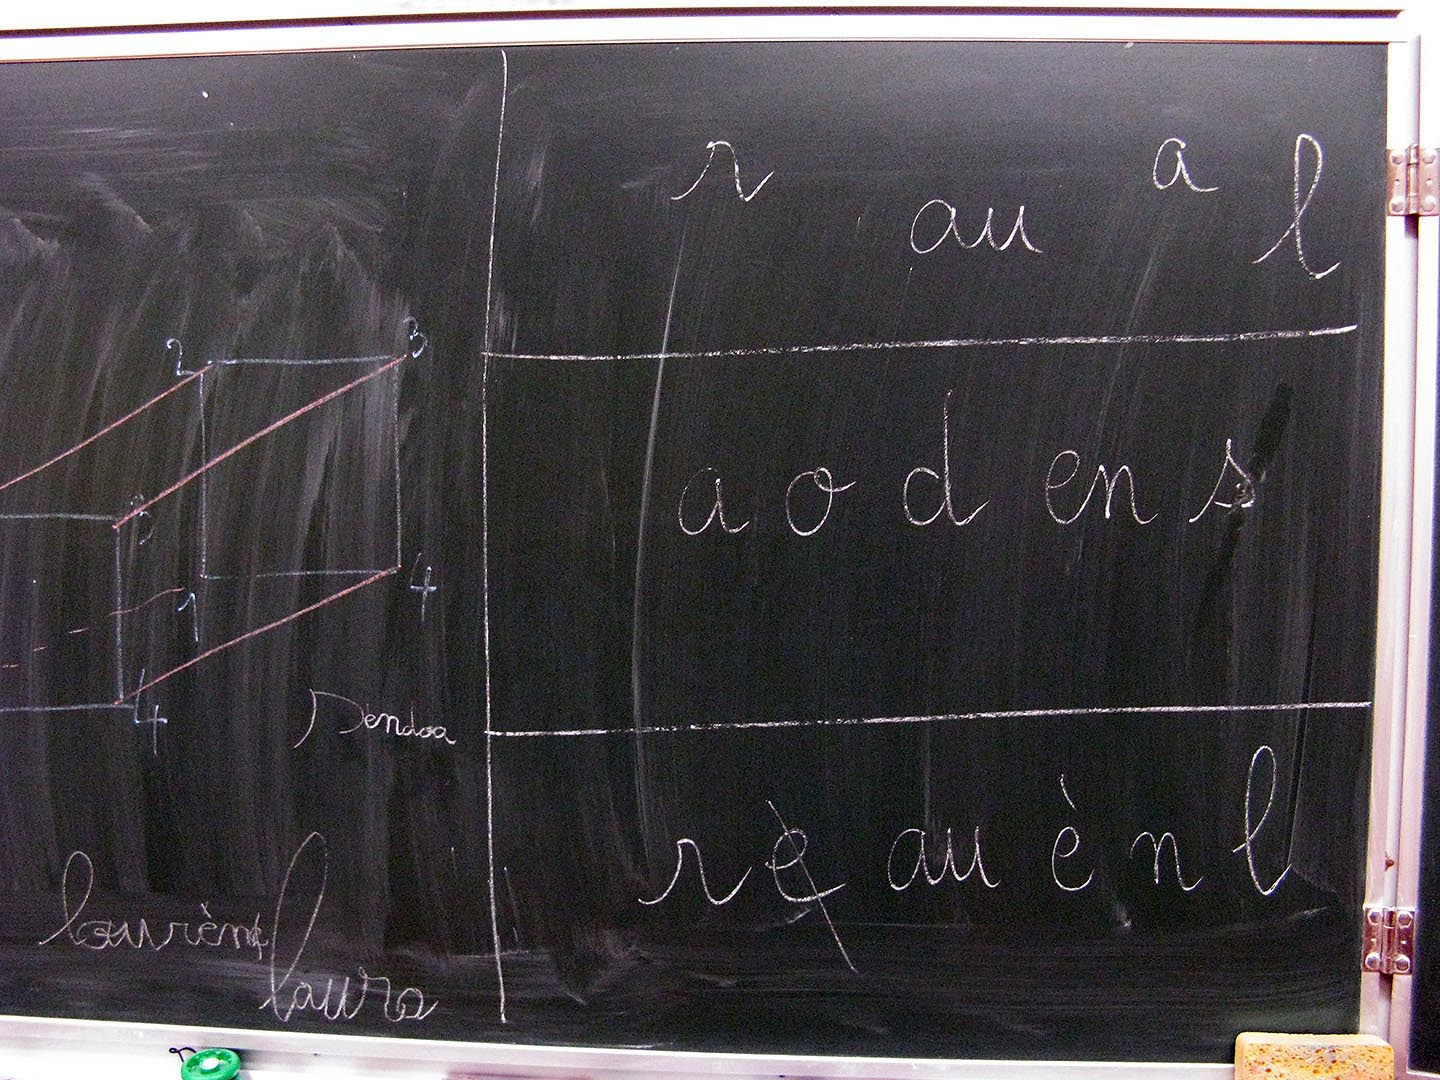 2 3
3
1 4
4
Sendoa
laurèn
laura
r au a l
a o d en s
r e au è n l